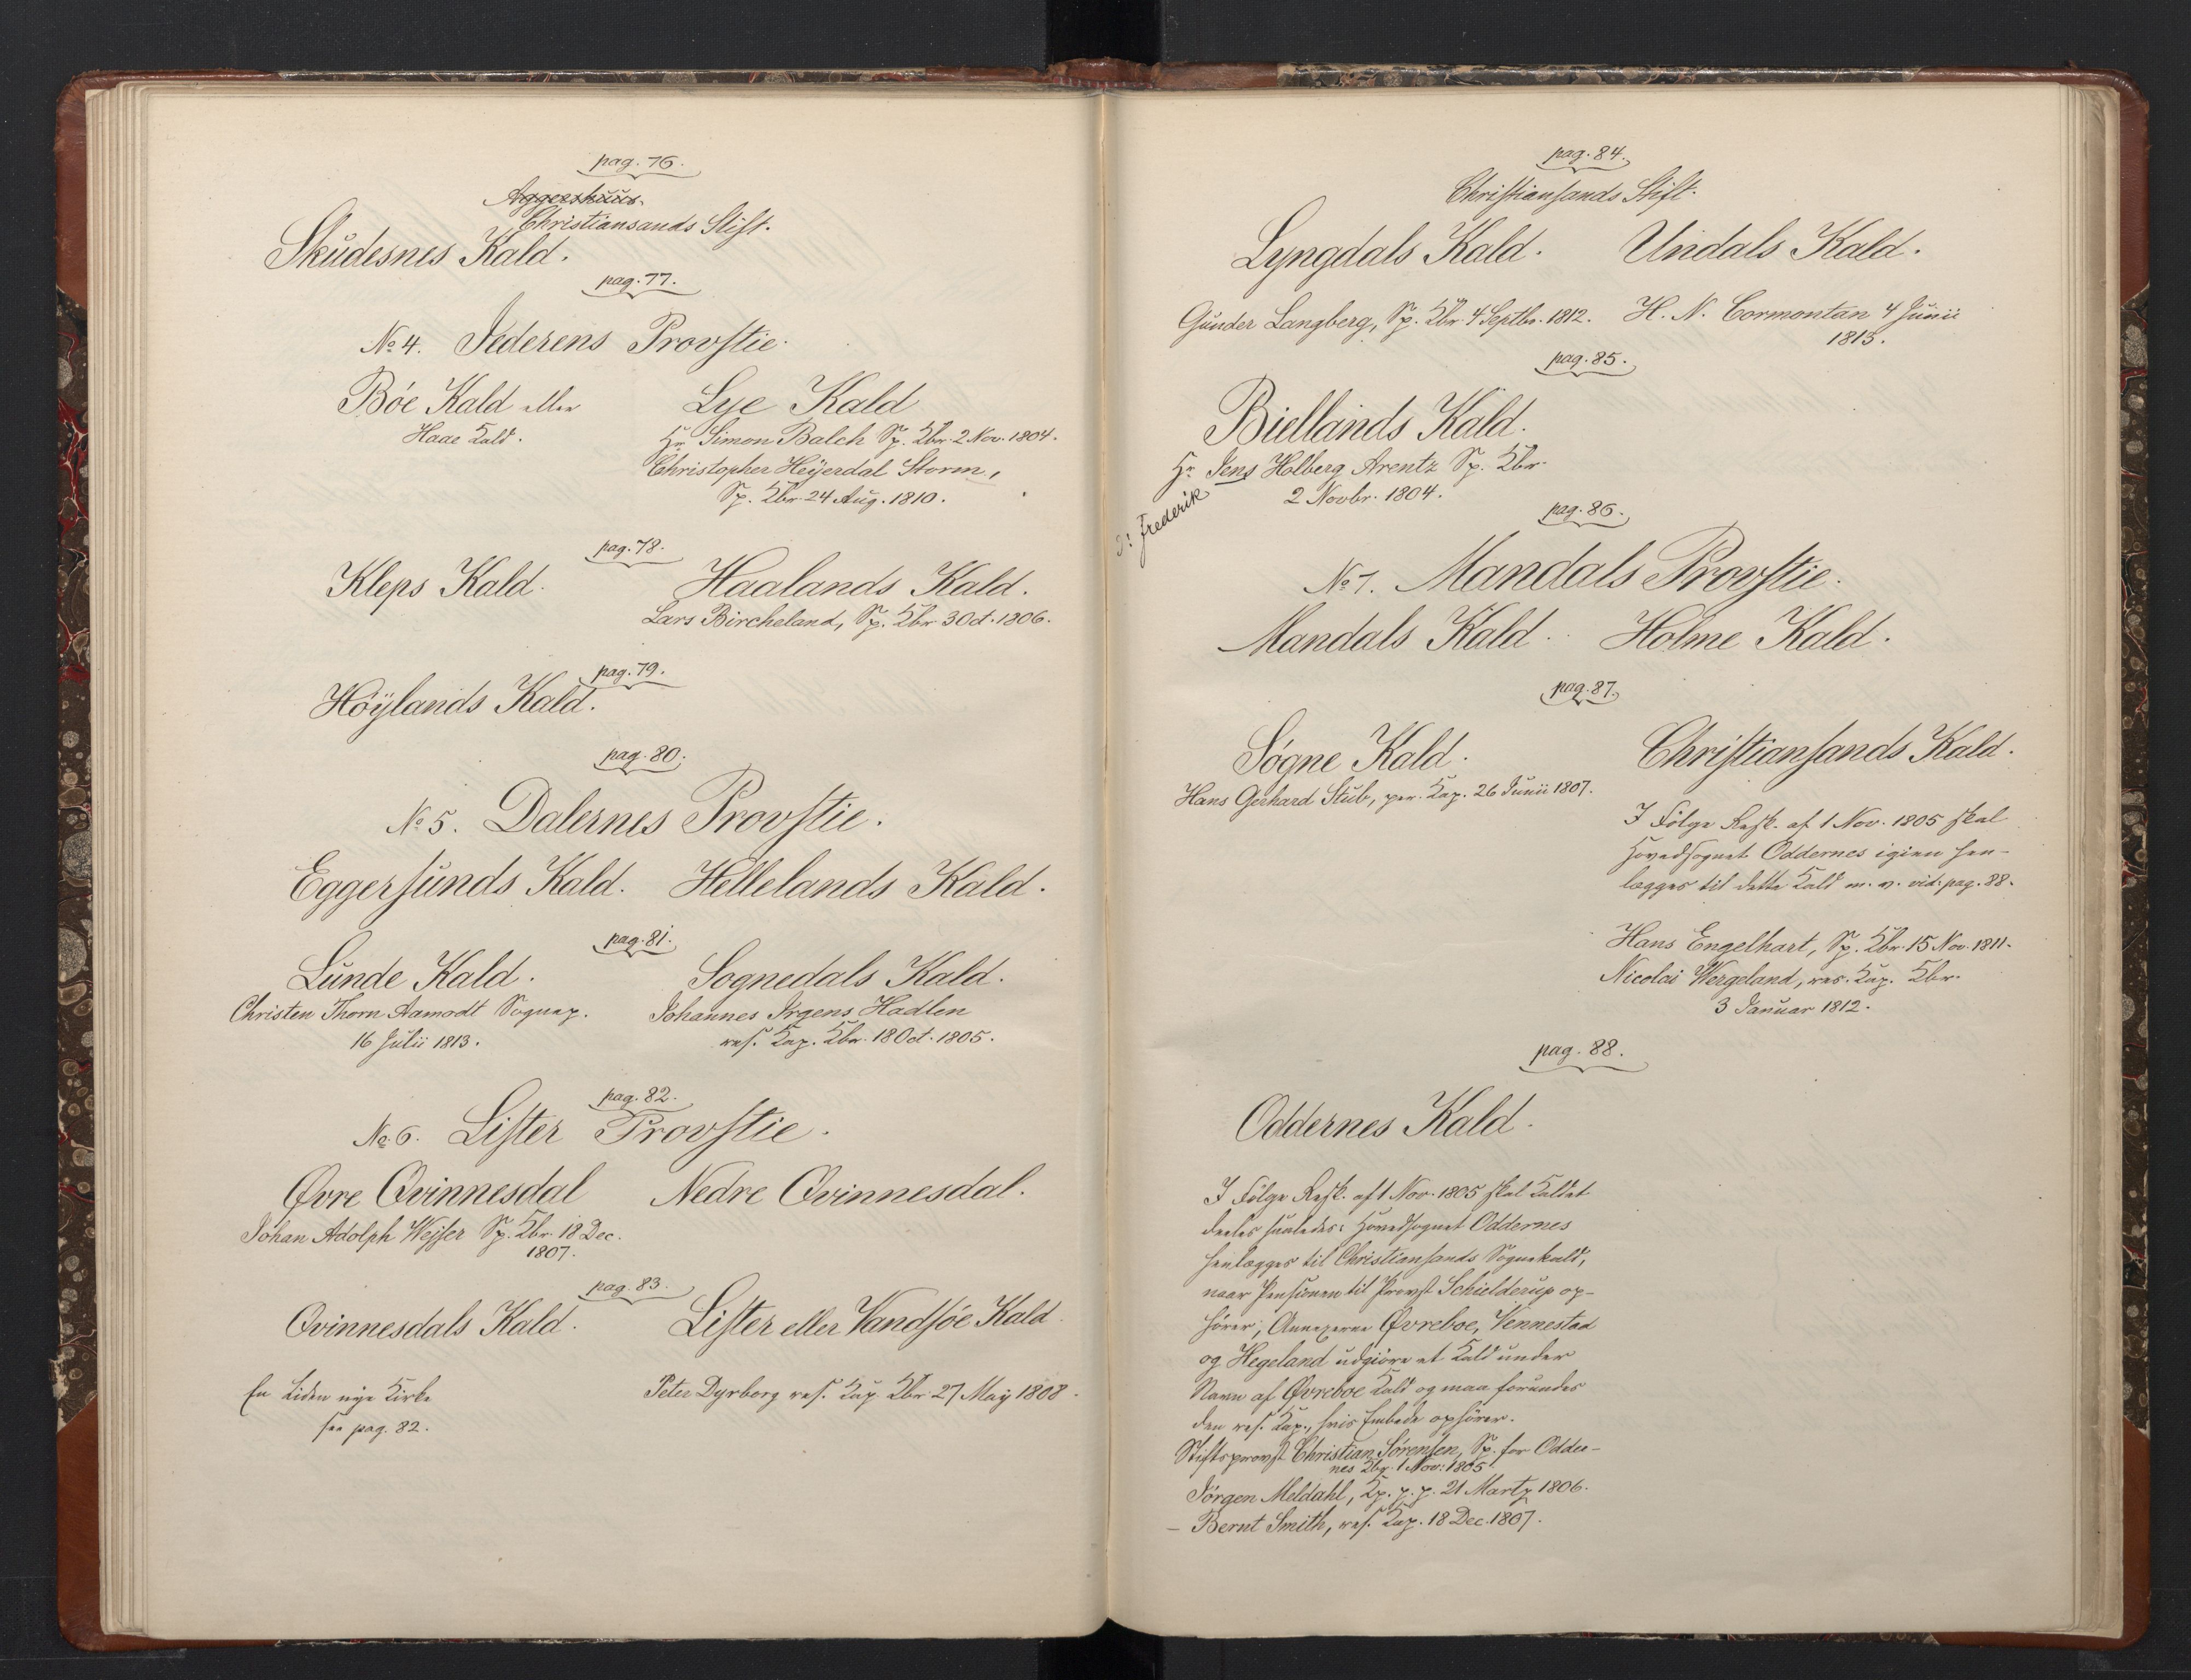 pag. 76.
Aggershuus
Christiansands Stift.
Skudesnes Kald.
pag. 77.
No 4. Jederens Provstie.
Bóe Kald eller
Haae Kald.
Lye Kald
Hr Simon Balch Sp. Kbr. 2 Nov. 1804.
Christopher Heÿerdal Storm,
Sp. Kbr. 24 Aug. 1810.
pag. 78.
Kleps Kald.
Haalands Kald.
Lars Bircheland, Sp. Kbr 3 Oct. 1806.
pag. 79.
Höÿlands Kald.
pag. 80.
No 5. Dalernes Provstie.
Eggersunds Kald. Hellelands Kald.
pag. 81.
Lunde Kald.
Christen Thorn Aamodt Sognep.
16 Julii 1813.
Sognedals Kald.
Johannes Irgens Hadlen
res. Kap. Kbr. 18 Oct. 1805.
pag. 82.
No 6. Lister Provstie.
Øvre Qvinnesdal
Johan Adolph Wejser Sp. Kbr. 18 Dec.
1807.
Nedre Qvinnesdal.
pag. 83.
Qvinnesdals Kald.
En liden nye Kirke
see pag. 82.
Lister eller Vandsóe Kald.
Peter Dyrborg res. Kap. Kbr. 27 May 1808.
pag. 84.
Christiansands Stift.
Lyngdals Kald.
Gunder Langberg, Sp. Kbr. 4 Septbr. 1812.
Undals Kald.
H. N. Cormontan 4 Junii
1813.
pag. 85.
Biellands Kald.
Hr Jens Holberg Arentz Sp. Kbr.
2 Novbr. 1804.
Frederik
pag. 86.
No 7. Mandals Provstie.
Mandals Kald. Holme Kald.
pag. 87.
Sógne Kald.
Hans Gerhard Stub, per. Kap. 26 Junii 1807.
Christiansands Kald.
I Fölge Resk. af 1 Nov. 1805 skal
Hovedsognet Oddernes igien hen-
lægges til dette Kald m. v. vid: pag. 88.
Hans Engelhart, Sp. Kbr. 15 Nov. 1811.
Nicolai Wergeland, res. Kap. Kbr.
3 Januar 1812.
pag. 88.
Oddernes Kald.
I Fölge Resk. af 1 Nov. 1805 skal Kaldet
deeles saaledes: Hovedsognet Oddernes
henlægges til Christiansands Sognekald,
naar Pensionen til Provst Schielderup op-
hörer; Annexerne Øvreboe, Vennestad
og Hegeland udgiöre et Kald under
Navn af Øvreboe Kald og maa forundes
den res. Kap., hvis Embede ophörer.
Stiftsprovst Christian Sörensen, Sp. for Odder-
nes Kbr. 1 Nov: 1805.
Jörgen Meldahl, Kp. p. p. 21 Martz 1806.
– Bernt Smith, res. Kap. 18 Dec. 1807.